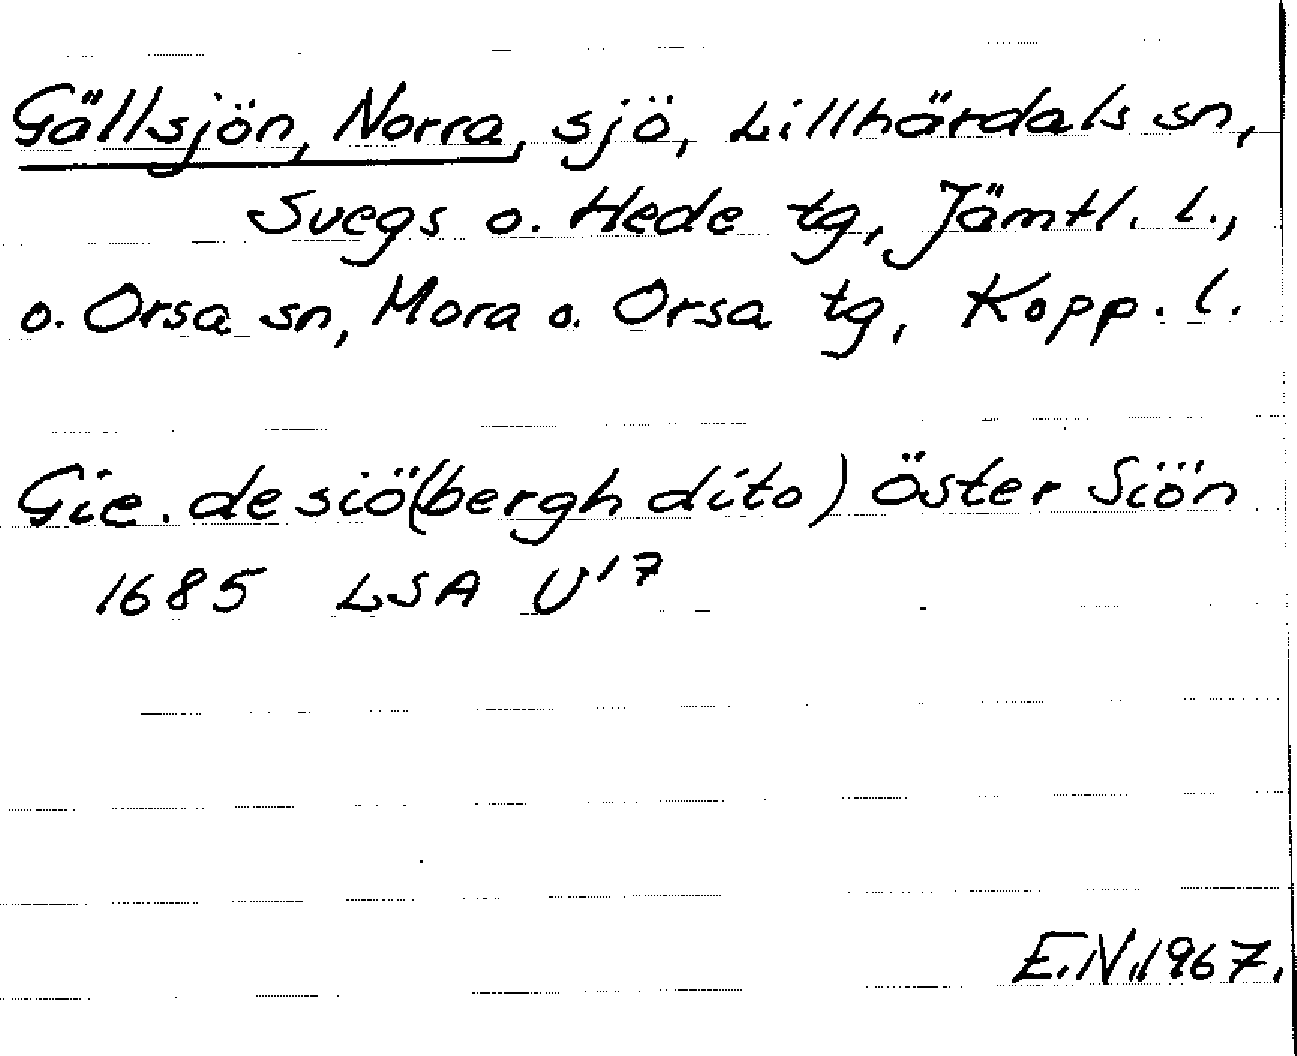 Gällsjön, Norra, sjö, Lillhärdals sn,
Svegs o. Hede tg, Jämtl. l.,
o. Orsa sn, Mora o. Orsa tg, Kopp. l.
Gie. de siö (bergh dito) öster Siön
1685 LSA U17
E.N. 1967.